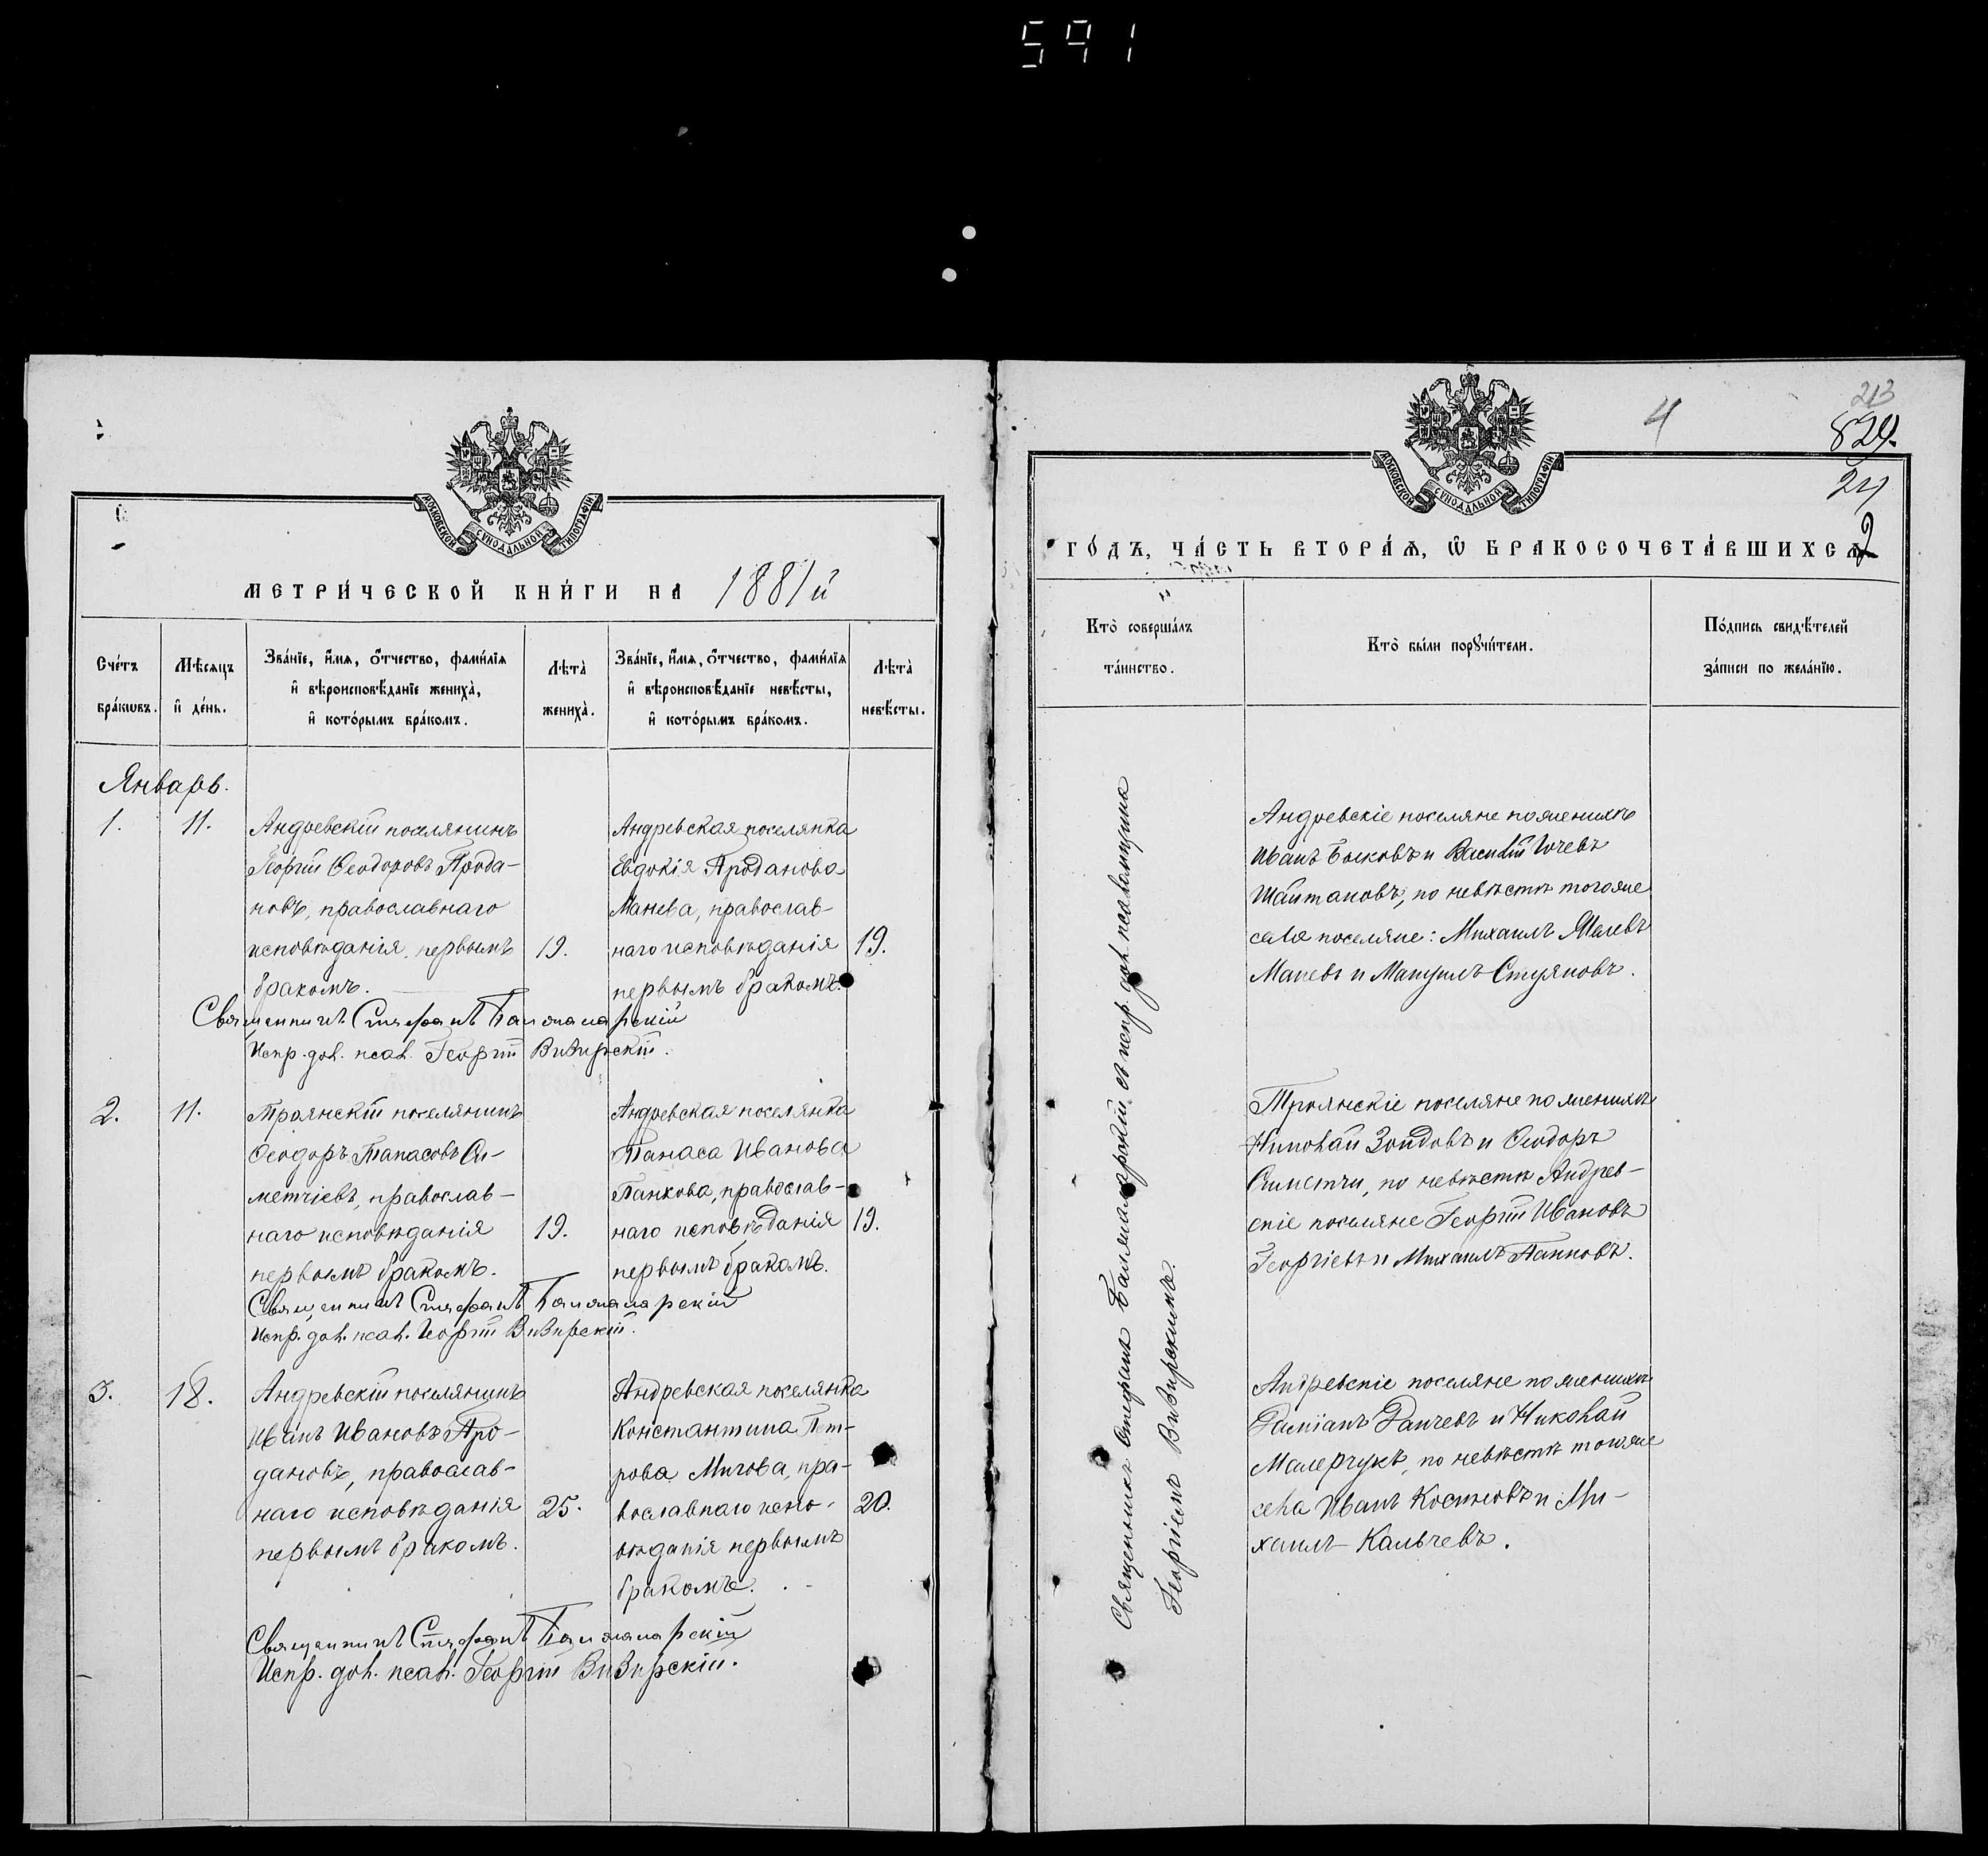 591
МОСКОВСКОЙ СУНОДАЛЬНОЙ ТИПОГРАФІИ
МЕТРИ́ЧЕСКОЙ КНИ́ГИ НА 1881й
Сче́тъ бра́кωвъ.
Мѣ́сяцъ и҆ де́нь.
Зва́нїе, и҆́мѧ, ѻ҆́тчество, фами́лїѧ
и҆ вѣроисповѣ́данїе жениха̀,
и҆ кото́рымъ бра́комъ.
Лѣта̀ жениха̀.
Зва́нїе, и҆́мѧ, ѻ҆́тчество, фами́лїѧ
и҆ вѣроисповѣ́данїе невѣ́сты,
и҆ кото́рымъ бра́комъ.
Лѣта̀ невѣ́сты.
Январь.
1. 11.
Андреевскій поселянинъ
Георгій Ѳеодоровъ Прода-
новъ, православнаго
исповѣданія, первымъ
бракомъ.
19.
Андреевская поселянка
Евдокія Проданова
Манева, православ-
наго исповѣданія
первымъ бракомъ.
19.
Священникъ Стефанъ
Испр. дол. псал. Георгій Визирскій.
2. 11.
Троянскій поселянинъ
Ѳеодоръ Танасовъ Си-
метчіевъ, православ-
наго исповѣданія
первымъ бракомъ.
19.
Андреевская поселянка
Танаса Иванова
Панкова, православ-
наго исповѣданія
первымъ бракомъ.
19.
Священникъ Стефанъ
Испр. дол. псал. Георгій Визирскій.
3. 18.
Андреевскій поселянинъ
Иванъ Ивановъ Про-
дановъ, православ-
наго исповѣданія
первымъ бракомъ.
25.
Андреевская поселянка
Константина Пет-
рова Мигова, пра-
вославнаго испо-
вѣданія первымъ
бракомъ.
20.
Священникъ Стефанъ
Испр. дол. псал. Георгій Визирскій.
4
213
829.
24
2
МОСКОВСКОЙ СУНОДАЛЬНОЙ ТИПОГРАФІИ
ГО́ДЪ, ЧА́СТЬ ВТОРА́Ѧ, Ѽ БРАКОСОЧЕТА́ВШИХСѦ
Кто̀ соверша́лъ
та́инство.
Кто̀ бы́ли порꙋчи́тели.
По́дпись свидѣ́телей
за́писи по жела́нїю.
Священникъ Стефанъ съ испр. дол. псаломщика
Георгіемъ Визирскимъ.
Андреевскіе поселяне по женихѣ
Иванъ Быковъ и Василій
Шайтановъ, по невѣстѣ тогоже
села поселяне: Михаилъ
Маневъ и Мануилъ Стояновъ.
Троянскіе поселяне по женихѣ
Николай и Ѳеодоръ
Симетчи, по невѣстѣ Андреев-
скіе поселяне Георгій Ивановъ
Георгіевъ и Михаилъ Панковъ.
Андреевскіе поселяне по женихѣ
Даміанъ Ганчевъ и Николай
по невѣстѣ тогоже
села Иванъ и Ми-
хаилъ Кальчевъ.